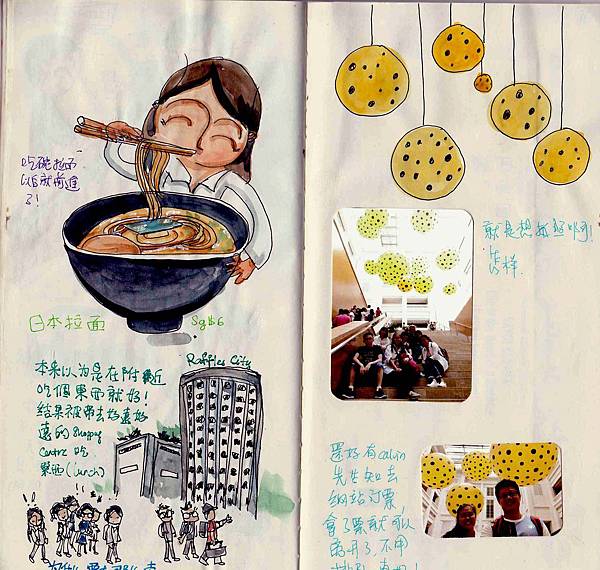 吃碗拉面
以后就前進
了!
日本拉面
Sg$6
本來以為是在附近
吃個東西就好!
結果被帶去好遠好
遠的 Shopping
Centre 吃
東西(Lunch)
Raffles City
就是想拍照啊!
怎樣.
還好有 Calvin
先生知去
網站訂票,
拿了票就可以
離開了,不用